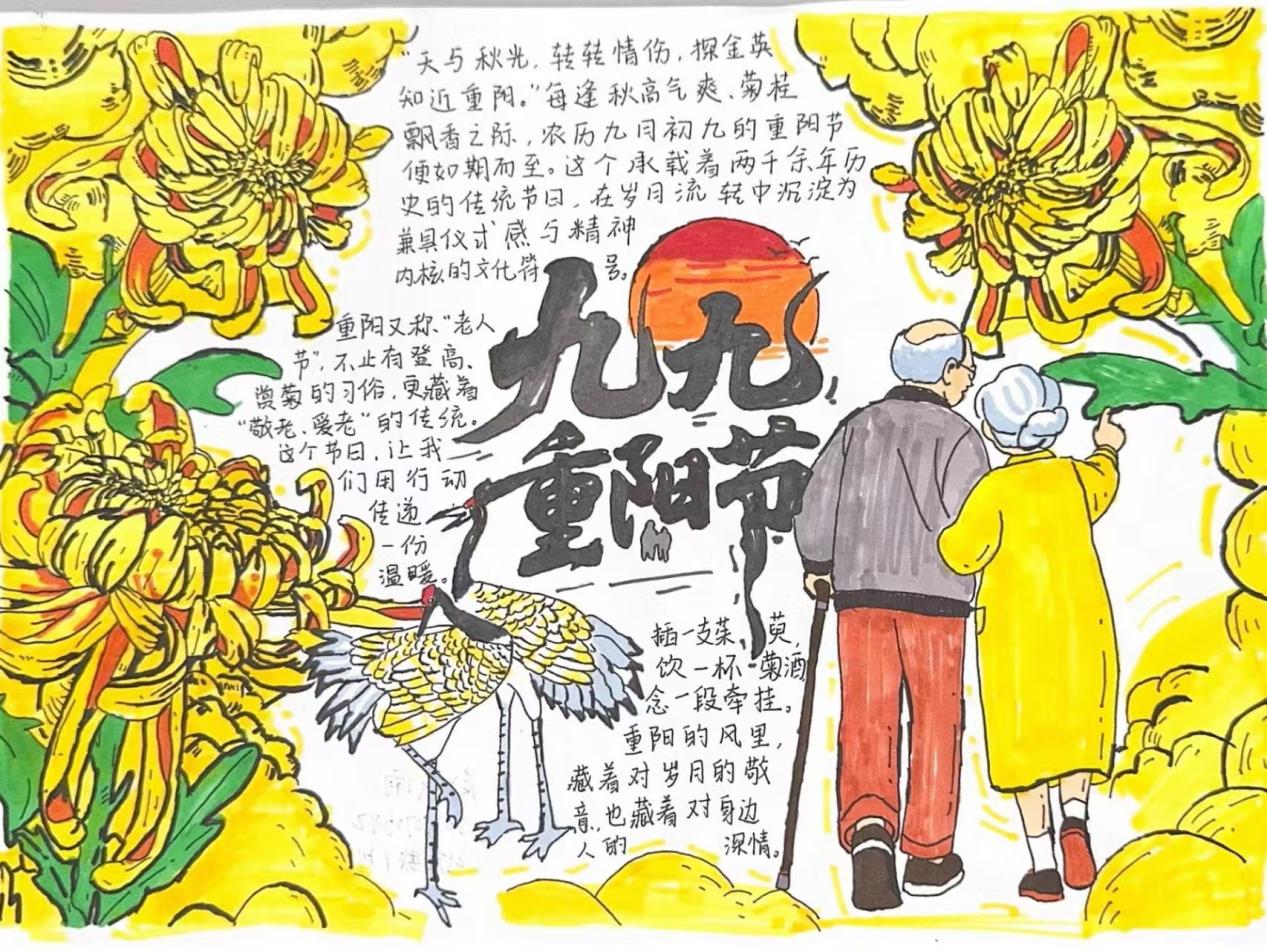 “天与秋光，转转情伤，探金英
知近重阳。”每逢秋高气爽、菊桂
飘香之际，农历九月初九的重阳节
便如期而至。这个承载着两千余年历
史的传统节日，在岁月流转中沉淀为
兼具仪式感与精神
内核的文化符号。
九九
重阳节
重阳又称“老人
节”，不止有登高、
赏菊的习俗，更藏着
“敬老、爱老”的传统。
这个节日，让我
们用行动
传递
一份
温暖。
插一支茱萸，
饮一杯菊酒
念一段牵挂。
重阳的风里，
藏着对岁月的敬
意，也藏着对身边
人的深情。